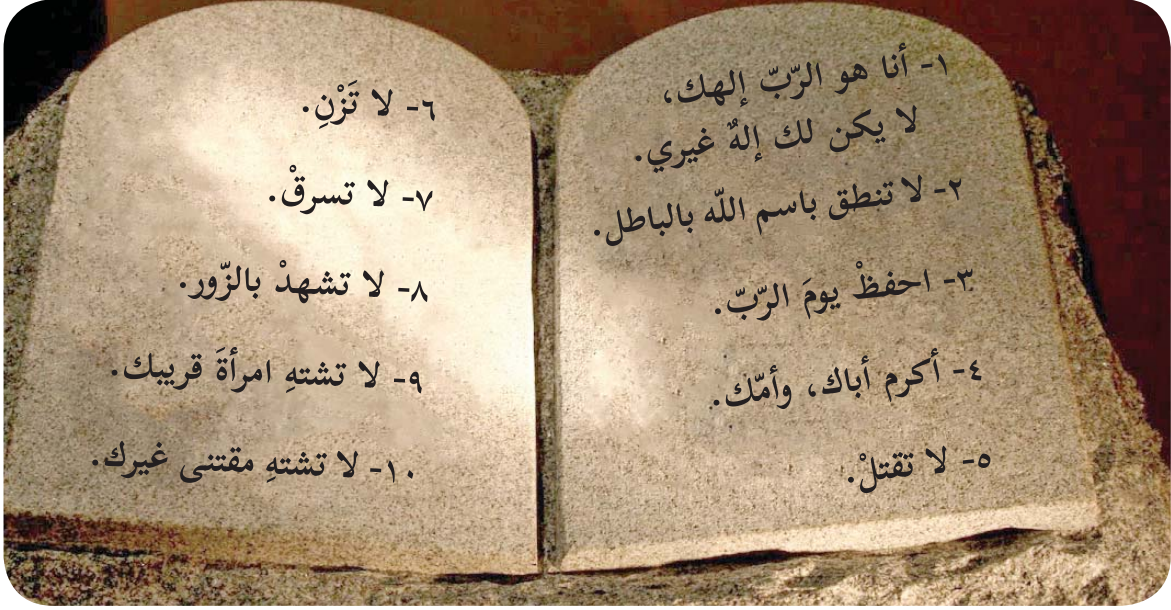 ١- أنا هو الرّبّ إلهك،
لا يكن لك إلهٌ غيري.
٢- لا تنطق باسم اللّه بالباطل.
٣- احفظْ يومَ الرّبّ.
٤- أكرم أباك، وأمّك.
٥- لا تقتلْ.
٦- لا تَزْنِ.
٧- لا تسرقْ.
٨- لا تشهدْ بالزّور.
٩- لا تشتهِ امرأةَ قريبك.
١٠- لا تشتهِ مقتنى غيرك.